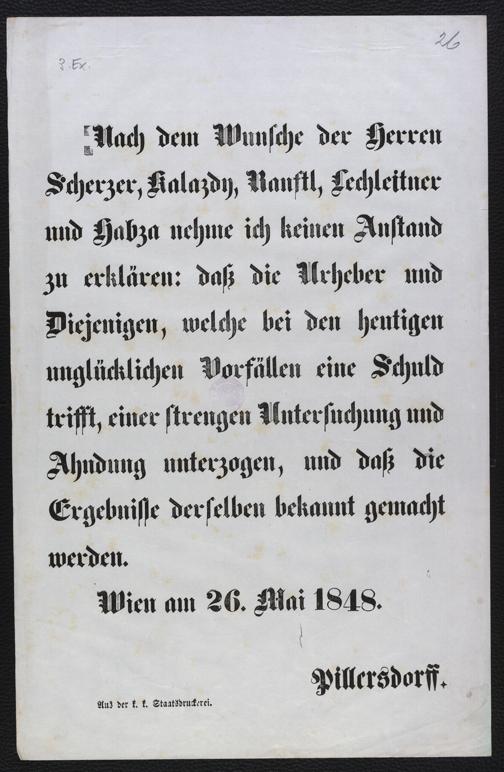 26
3. Ex.
Nach dem Wunsche der Herren
Scherzer, Kalazdy, Ranftl, Lechleitner
und Habza nehme ich keinen Anstand
zu erklären: daß die Urheber und
Diejenigen, welche bei den heutigen
unglücklichen Vorfällen eine Schuld
trifft, einer strengen Untersuchung und
Ahndung unterzogen, und daß die
Ergebnisse derselben bekannt gemacht
werden.
Wien am 26. Mai 1848.
Pillersdorff.
Aus der k. k. Staatsdruckerei.